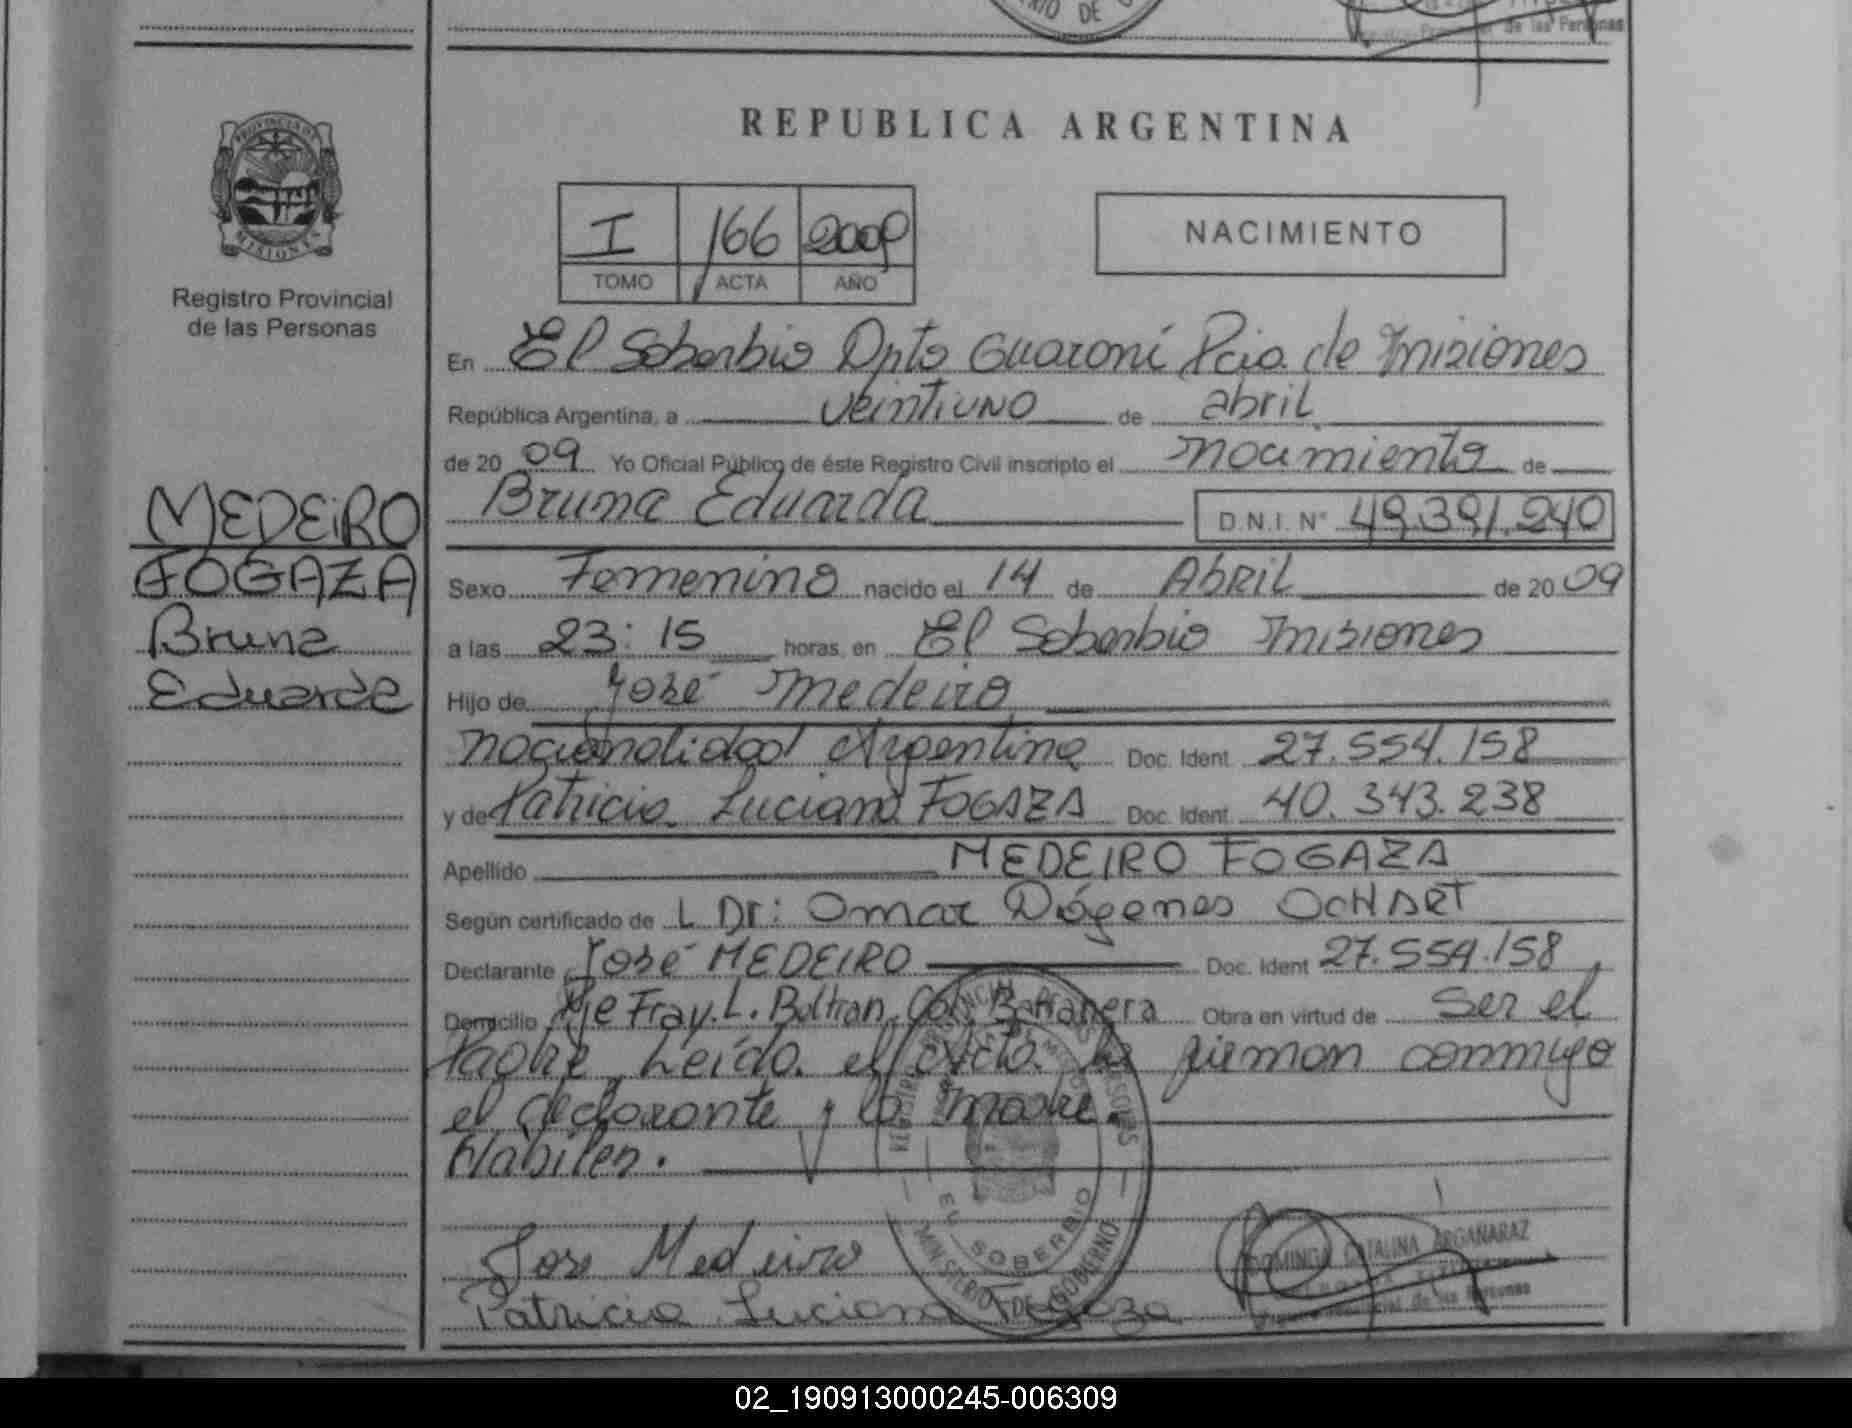 RIO DE
de las Personas
REPUBLICA ARGENTINA
PROVINCIA DE
MISIONES
Registro Provincial
de las Personas
I 166 2009
TOMO ACTA AÑO
NACIMIENTO
En El Soberbio Dpto Guaraní Pcia de Misiones
República Argentina, a veintiuno de abril
de 2009 Yo Oficial Público de éste Registro Civil inscripto el nacimiento de
Bruna Eduarda D.N.I. N° 49.391.240
MEDEIRO
FOGAZA
Bruna
Eduarda
Sexo Femenino nacido el 14 de Abril de 2009
a las 23:15 horas, en El Soberbio Misiones
Hijo de José Medeiro
nacionalidad Argentina Doc. Ident 27.554.158
y de Patricia Luciana FOGAZA Doc. Ident 40.343.238
Apellido MEDEIRO FOGAZA
Según certificado de L Dr: Omar Diógenes OCHART
Declarante José MEDEIRO Doc. Ident 27.554.158
Domicilio Pje Fray. L. Beltran, Col. Barranera Obra en virtud de Ser el
Padre, Leída el Acta la firman conmigo
el declarante y la madre.
Habiles.
Jose Medeiro
Patricia Luciana Fogaza
EL SOBERBIO
MINISTERIO DE GOBIERNO
DOMINGA CATALINA ARGAÑARAZ
de las Personas
02_190913000245-006309